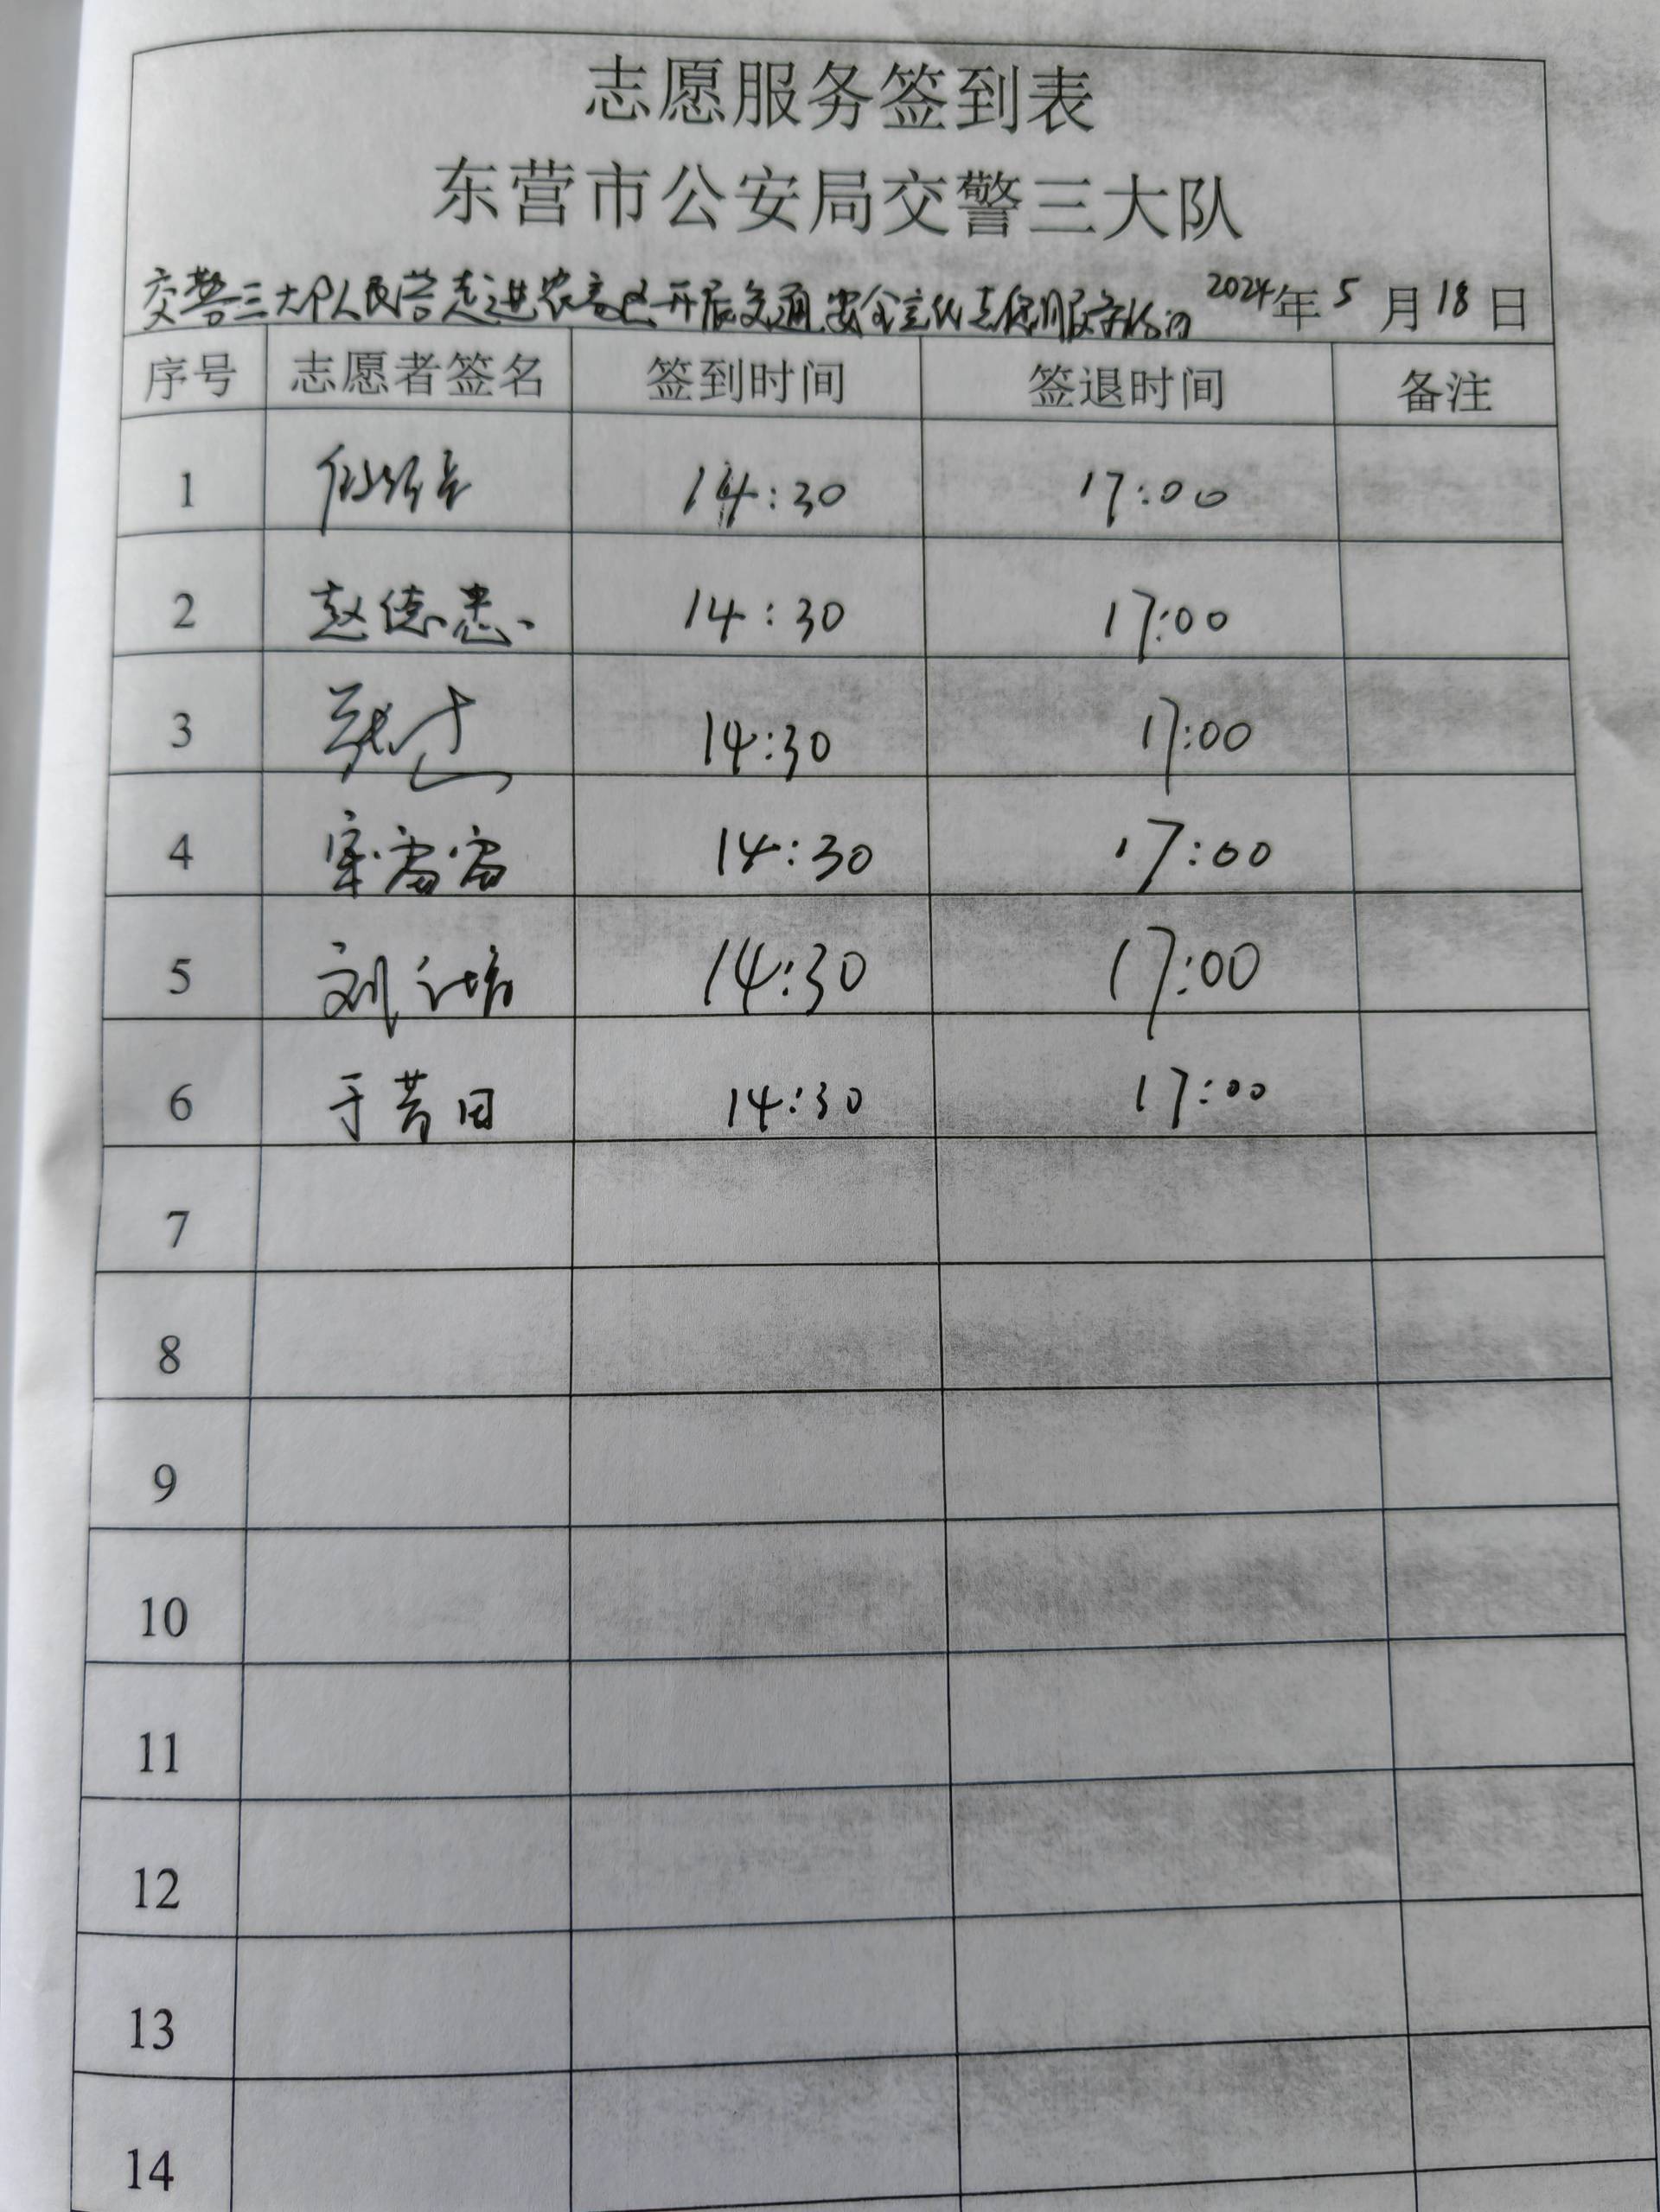 志愿服务签到表
东营市公安局交警三大队
交警三大队民警走进农高区开展交通安全宣传志愿服务活动 2024年5月18日
序号 志愿者签名 签到时间 签退时间 备注
1 14:30 17:00
2 赵德忠 14:30 17:00
3 14:30 17:00
4 雷雷 14:30 17:00
5 刘 14:30 17:00
6 于 14:30 17:00
7
8
9
10
11
12
13
14